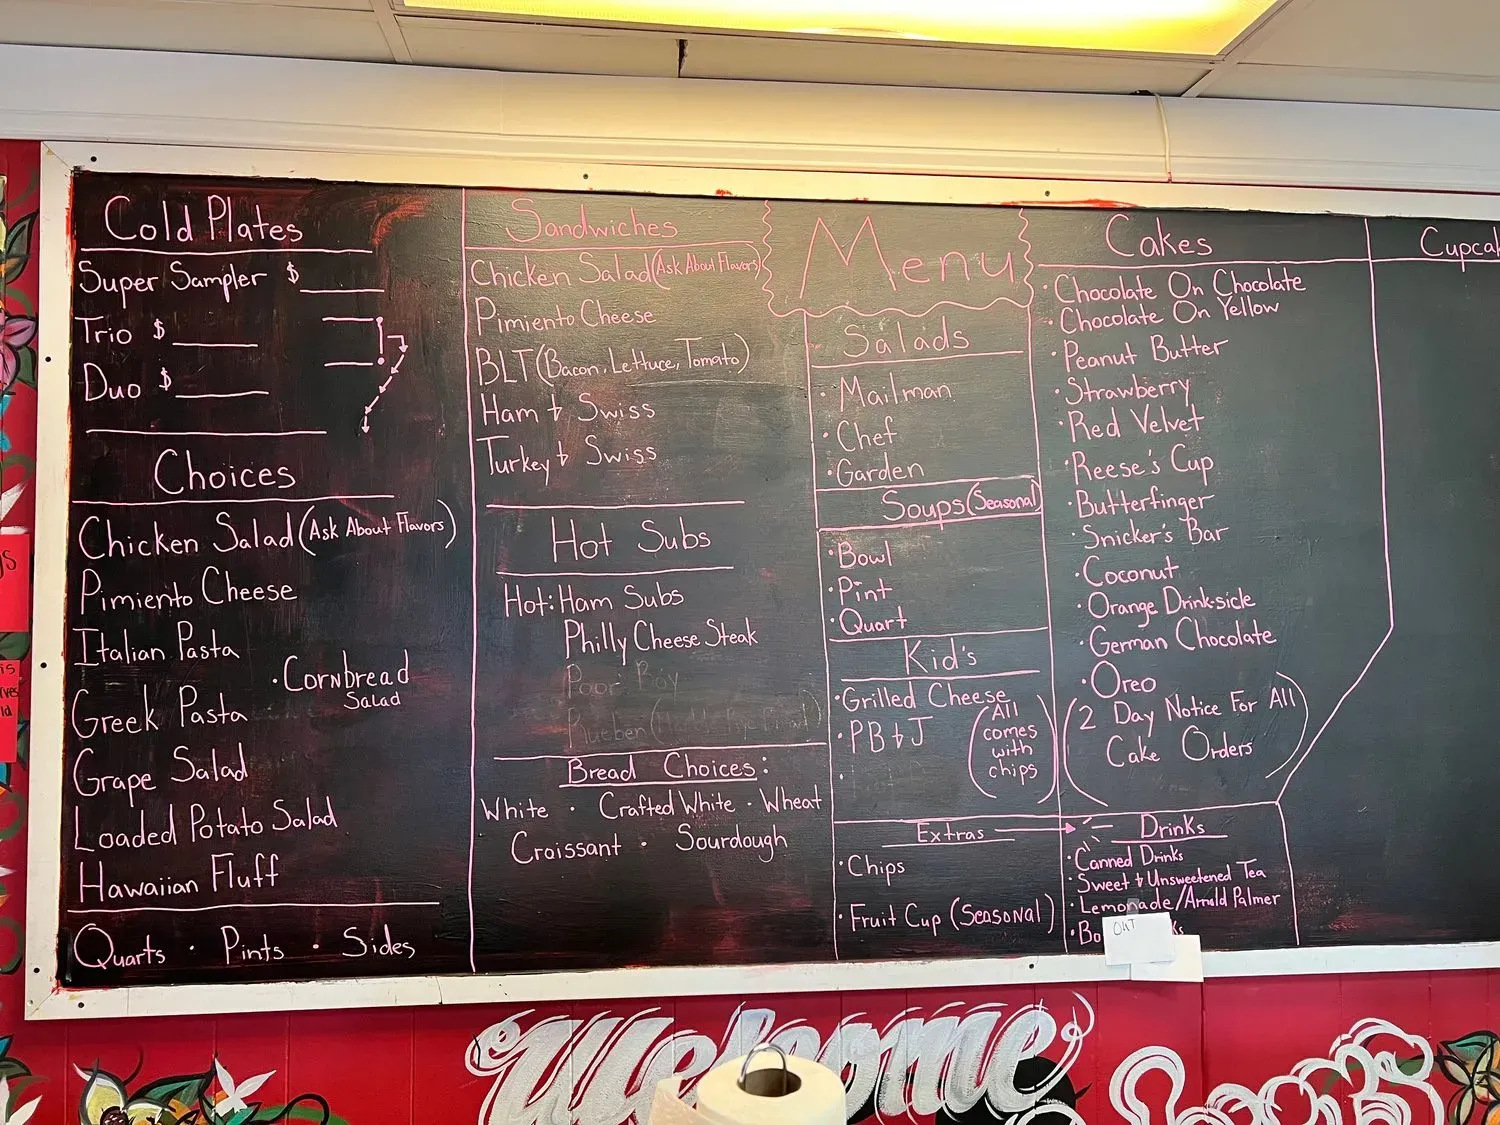 Cold Plates
Super Sampler $
Trio $
Duo $
Choices
Chicken Salad (Ask About Flavors)
Pimiento Cheese
Italian Pasta
· Cornbread
Salad
Greek Pasta
Grape Salad
Loaded Potato Salad
Hawaiian Fluff
Quarts · Pints · Sides
Sandwiches
Chicken Salad (Ask About Flavors)
Pimiento Cheese
BLT (Bacon, Lettuce, Tomato)
Ham & Swiss
Turkey & Swiss
Hot Subs
Hot: Ham Subs
Philly Cheese Steak
Poor Boy
Rueben
Bread Choices:
White · Crafted White · Wheat
Croissant · Sourdough
Menu
Salads
· Mailman
· Chef
· Garden
Soups (Seasonal)
· Bowl
· Pint
· Quart
Kid's
· Grilled Cheese
· PB & J
(All
comes
with
chips)
Extras
· Chips
· Fruit Cup (Seasonal)
Cakes
· Chocolate On Chocolate
· Chocolate On Yellow
· Peanut Butter
· Strawberry
· Red Velvet
· Reese's Cup
· Butterfinger
· Snicker's Bar
· Coconut
· Orange Drink-sicle
· German Chocolate
· Oreo
(2 Day Notice For All
Cake Orders)
Drinks
· Canned Drinks
· Sweet & Unsweetened Tea
· Lemonade/Arnold Palmer
· Bo ks
OUT
Cupcak
Welcome